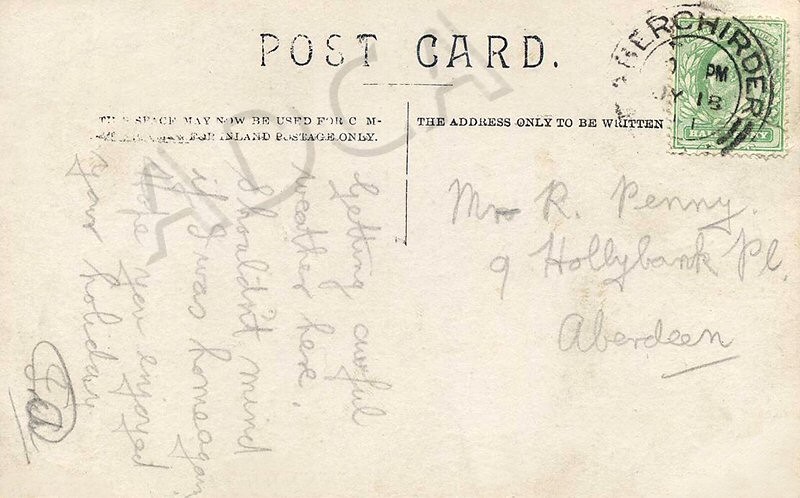 POST CARD.
THIS SPACE MAY NOW BE USED FOR COM-
FOR INLAND POSTAGE ONLY.
THE ADDRESS ONLY TO BE WRITTEN
ABERCHIRDER
PM
JY 18
HALFPENNY
Getting awful
weather here.
Shouldn't mind
if I was home again
Hope you enjoyed
your holiday
Mr R. Penny.
9 Hollybank Pl.
Aberdeen
ADCA